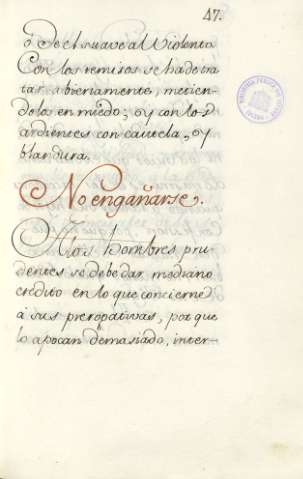 47.
ó De el suave al Violento
Con los remisos se ha de tra
tar abiertamente, metien-
dolos en miedo; y con los
ardientes con cautela, y
blandura.
No engañarse.
A los hombres pru
dentes se debe dar mediano
credito en lo que concierne
à sus prerogativas, porque
lo apocan demasiado, inter-